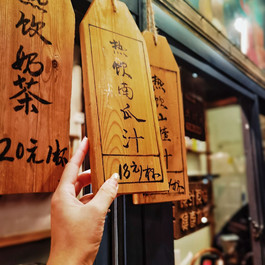 热饮奶茶
20元/杯
热饮南瓜汁
18元/杯
热饮山楂汁